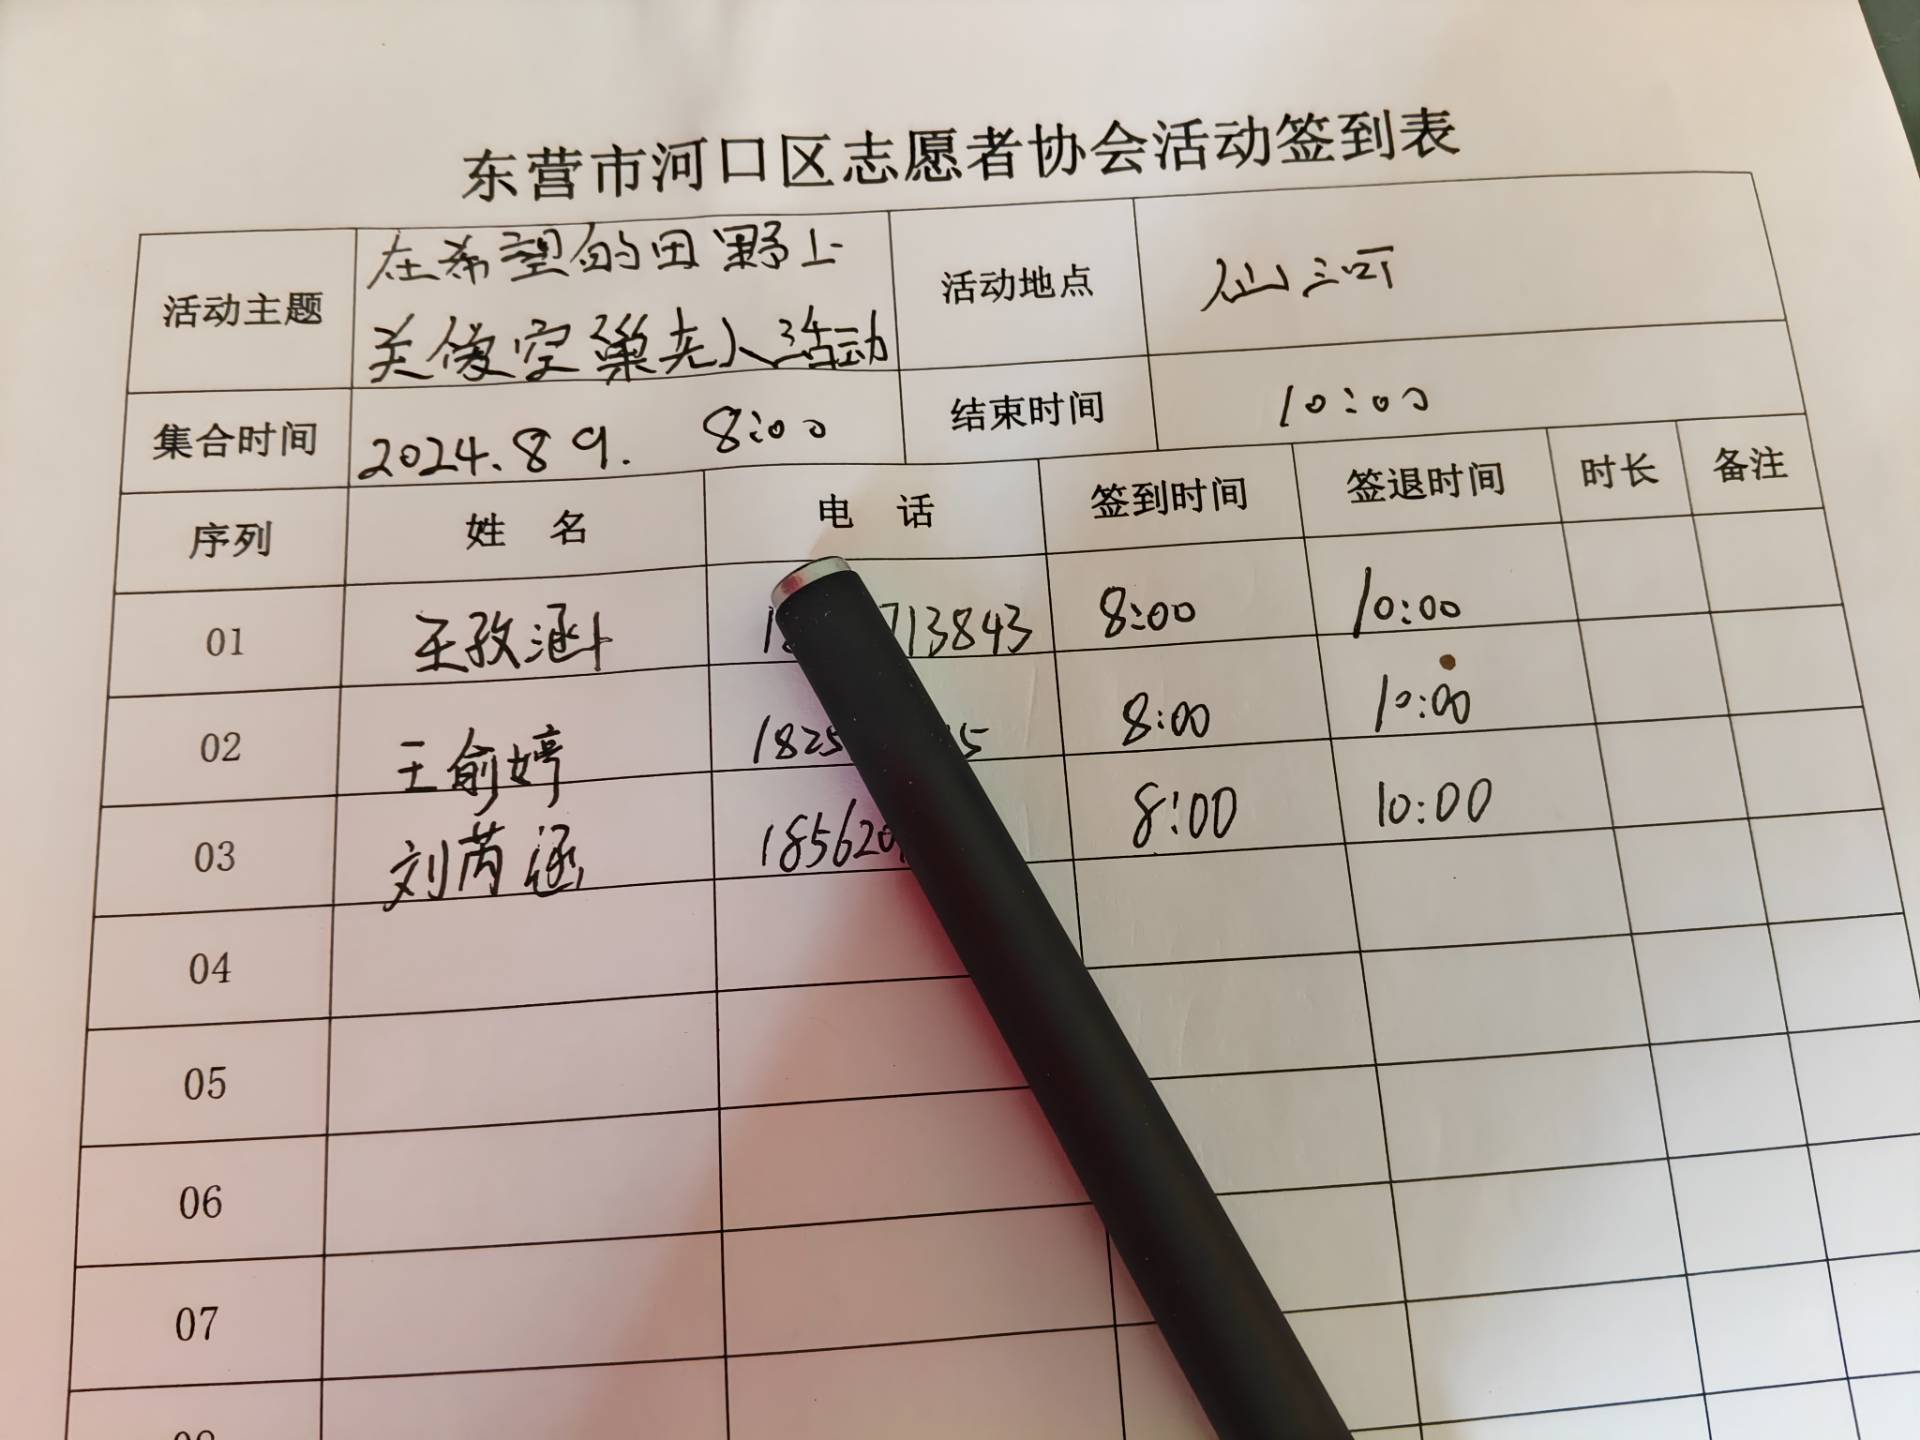 东营市河口区志愿者协会活动签到表
活动主题 在希望的田野上 关爱空巢老人活动 活动地点 仙河
集合时间 2024.8 9. 8:00 结束时间 10:00
序列 姓 名 电 话 签到时间 签退时间 时长 备注
01 王孜涵 713843 8:00 10:00
02 王俞婷 1825 5 8:00 10:00
03 刘芮涵 185620 8:00 10:00
04
05
06
07